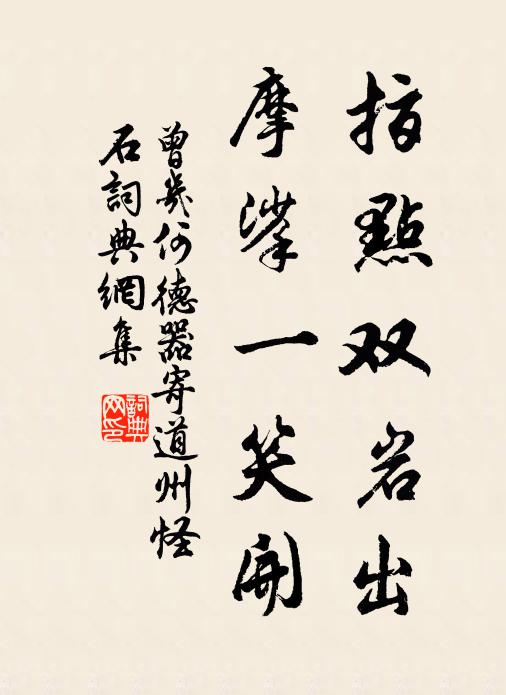 指點双岩出
摩挲一笑開
曾幾何德器寄道州怪
石詞典網集
詞典
网印